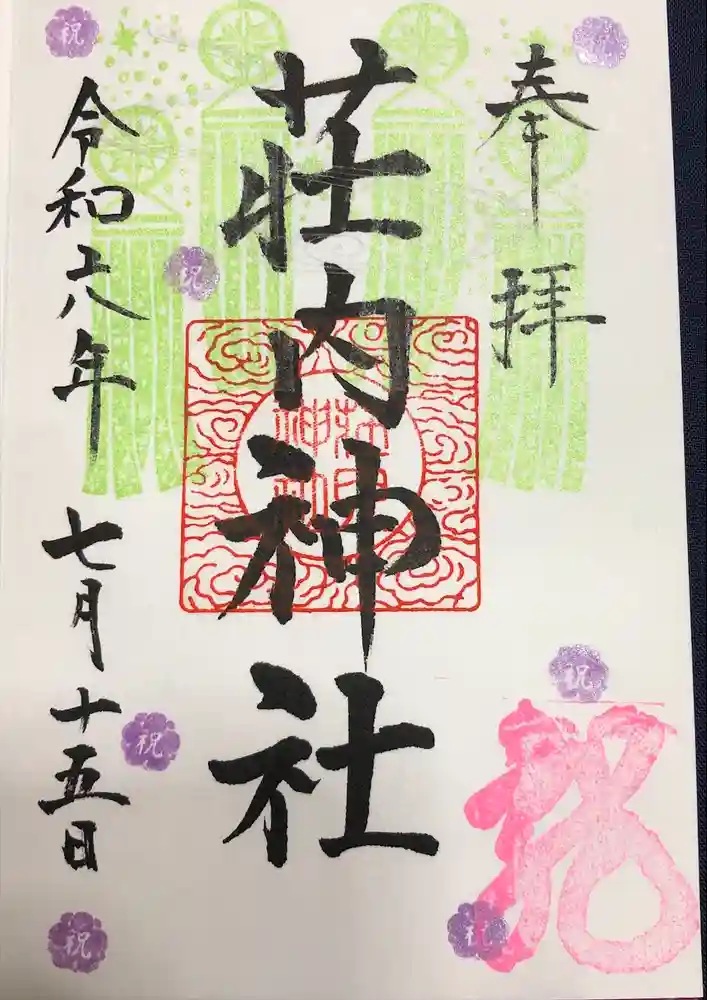 奉拝
荘内神社
荘内
神社
令和六年
七月十五日
祝
祝
祝
祝
祝
祝
祝
祝